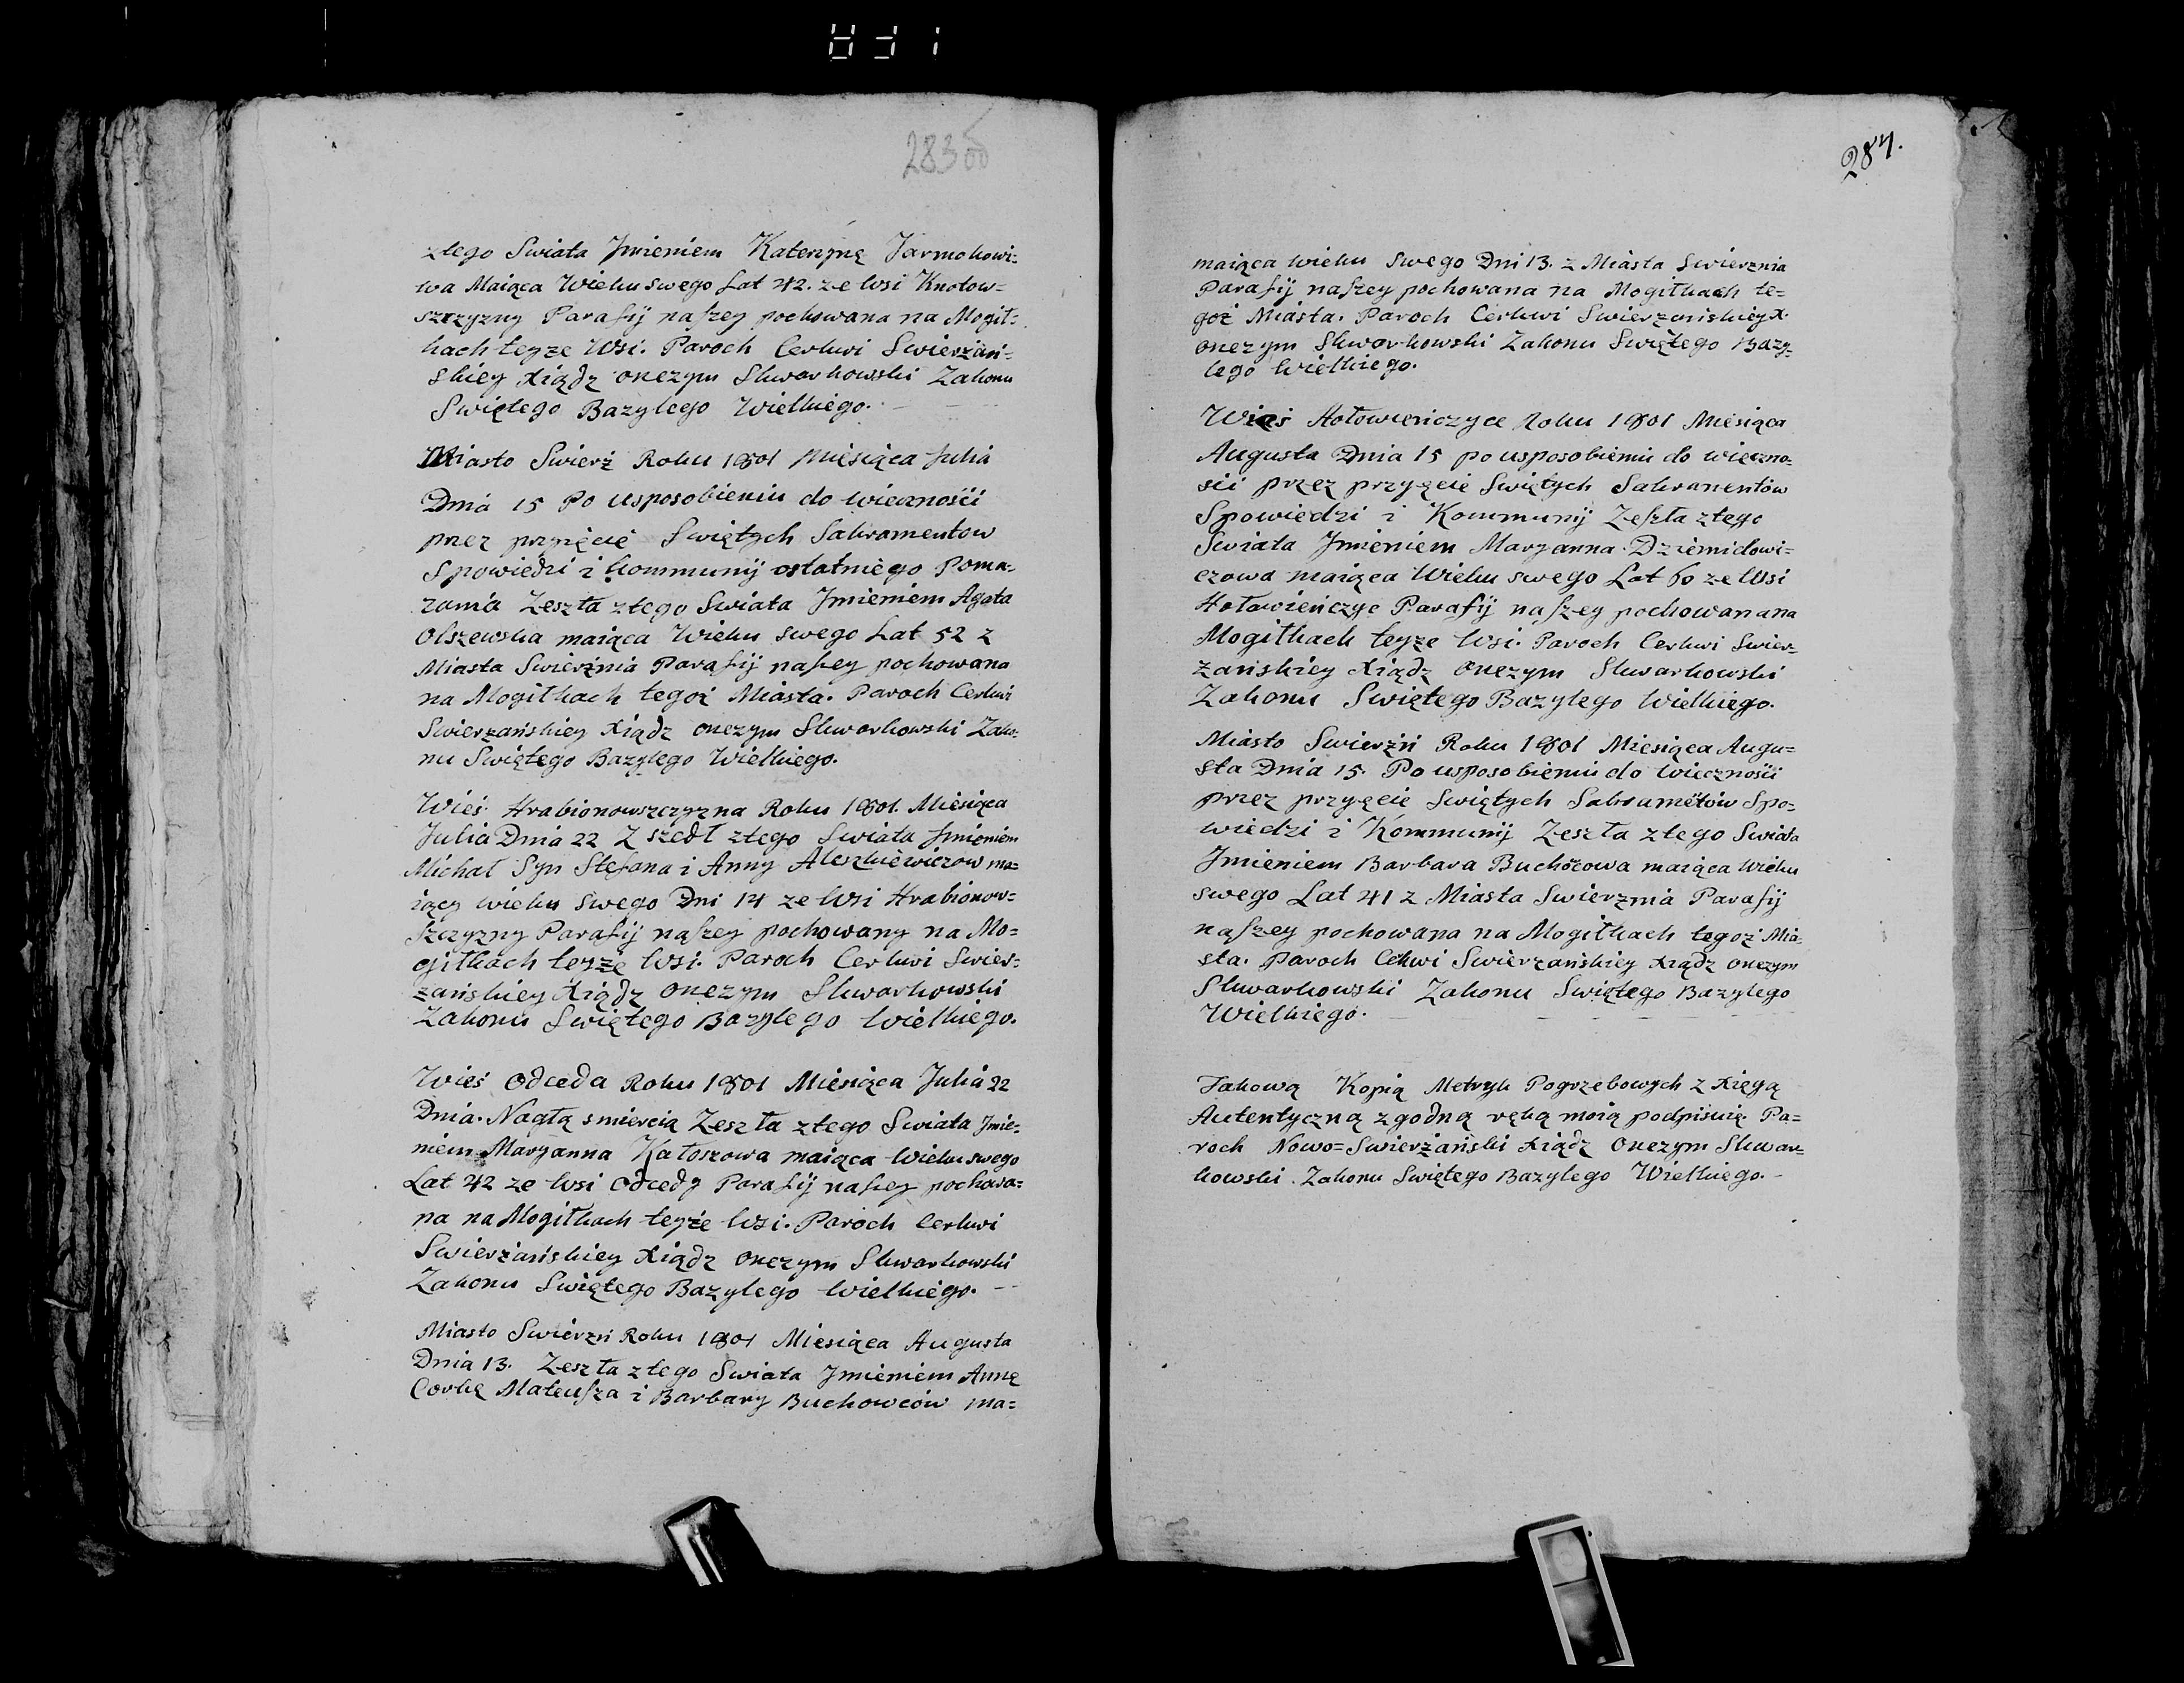 283 об
ztego Swiata Jmieniem Katerzynę Jarmokowi=
wa Maiąca Wieku swego Lat 42. ze Wsi Knotow=
szczyzny Parafij naszey pochowana na Mogił=
kach teyze Wsi. Paroch Cerkwi Swierżań=
skiey Xiądz Onezym Skwarkowski Zakonu
Swiętego Bazylego Wielkiego.
Miasto Swierż Roku 1801 Miesiąca Julia
Dnia 15 Po usposobieniu do wiecznośći
przez przyięcie Swiętych Sakramentow
Spowiedzi i Kommunij ostatniego Poma=
zania Zeszła ztego Swiata Jmieniem Agata
Olszewska maiąca Wieku swego Lat 52 z
Miasta Swierżnia Parafij naszey pochowana
na Mogiłkach tegoż Miasta. Paroch Cerkwi
Swierżańskiey Xiądz Onezym Skwarkowski Zako=
nu Swiętego Bazylego Wielkiego.
Wieś Hrabionowszczyzna Roku 1801. Miesiąca
Julia Dnia 22 Z szedł ztego Swiata Jmieniem
Michał Syn Stefana i Anny Aleszkiewiczow ma=
iący wieku swego Dni 14 ze Wsi Hrabionow=
szczyzny Parafij naszey pochowany na Mo=
giłkach teyże Wsi. Paroch Cerkwi Swier=
żańskiey Xiądz Onezym Skwarkowski
Zakonu Swiętego Bazylego Wielkiego.
Wieś Odceda Roku 1801 Miesiąca Julia 22
Dnia. Nagłą smiercią Zeszła ztego Swiata Jmie=
niem Maryanna Katoszowa maiąca Wieku swego
Lat 42 ze Wsi Odcedy Parafij naszey pochowa=
na na Mogiłkach teyże Wsi. Paroch Cerkwi
Swierżańskiey Xiądz Onezym Skwarkowski
Zakonu Swiętego Bazylego Wielkiego.
Miasto Swierżń Roku 1801 Miesiąca Augusta
Dnia 13. Zeszła ztego Swiata Jmieniem Annę
Corkę Mateusza i Barbary Buchowców ma=
284.
maiąca wieku Swego Dni 13. z Miasta Swierznia
Parafij naszey pochowana na Mogiłkach te=
goż Miasta. Paroch Cerkwi Swierzańskiey X.
Onezym Skwarkowski Zakonu Swiętego Bazy=
lego Wielkiego.
Wieś Hołowieńczyce Roku 1801 Miesiąca
Augusta Dnia 15 po usposobieniu do wieczno=
sći przez przyięcie Swiętych Sakramentów
Spowiedzi i Kommunij Zeszła ztego
Swiata Jmieniem Maryanna Dziemidowi=
czowa maiąca Wieku swego Lat 60 ze Wsi
Hołowieńczyc Parafij naszey pochowana na
Mogiłkach teyże Wsi. Paroch Cerkwi Swier=
żańskiey Xiądz Onezym Skwarkowski
Zakonu Swiętego Bazylego Wielkiego.
Miasto Swierżń Roku 1801 Miesiąca Augu=
sta Dnia 15. Po usposobieniu do wiecznośći
przez przyięcie Swiętych Sakramẽtów Spo=
wiedzi i Kommunij Zeszła ztego Swiata
Jmieniem Barbara Buchocowa maiąca Wieku
swego Lat 41 z Miasta Swierznia Parafij
naszey pochowana na Mogiłkach tegoż Mia=
sta. Paroch Cekwi Swierzańskiey Xiądz Onezym
Skwarkowski Zakonu Swiętego Bazylego
Wielkiego.
Takową Kopią Metryk Pogrzebowych z Xięgą
Autentyczną zgodną ręką moią podpisuię. Pa=
roch Nowo=Swierżański Xiądz Onezym Skwar=
kowski Zakonu Swiętego Bazylego Wielkiego.